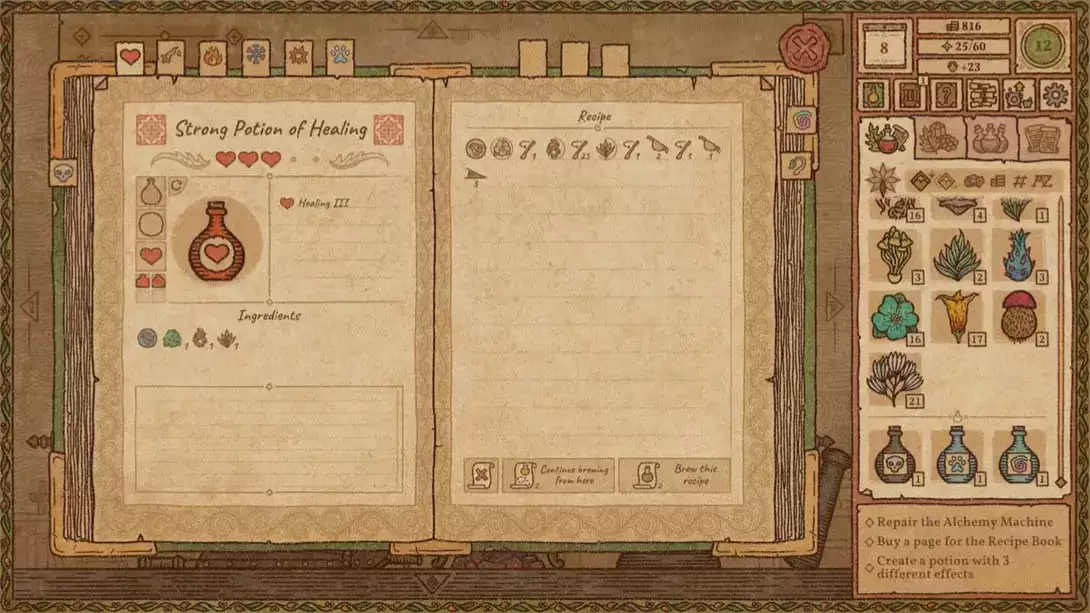 8
816
25/60
+23
12
Strong Potion of Healing
Healing III
Ingredients
1
1
1
Recipe
1
25
1
2
1
1
3
2
Continue brewing
from here
2
Brew this
recipe
# AZ
16
4
1
3
2
3
16
17
2
21
1
1
1
Repair the Alchemy Machine
Buy a page for the Recipe Book
Create a potion with 3
different effects